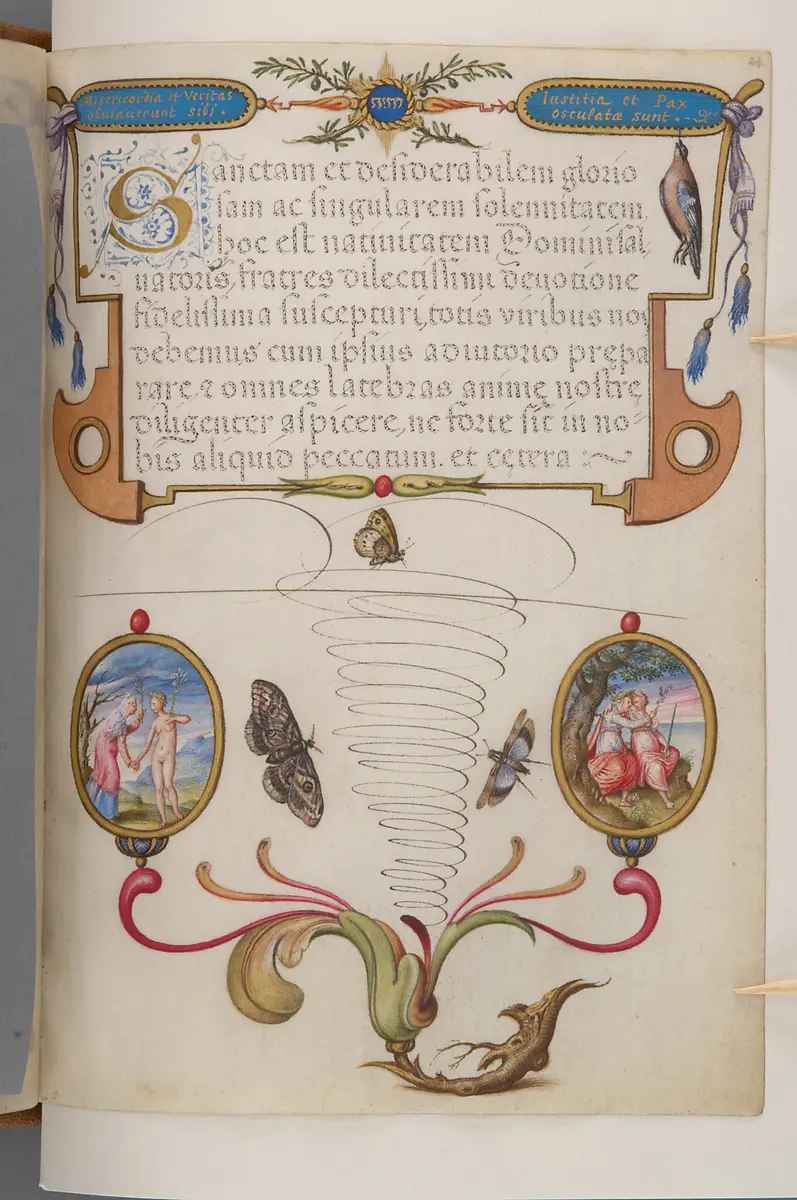 Misericordia et Veritas
obuiauerunt sibi.
Iustitia et Pax
osculatæ sunt.
Sanctam et desiderabilem glorio
sam ac singularem solennitatem,
hoc est natiuitatem Domini sal,
uatoris, fratres dilectissimi deuotione
fidelissima suscepturi, totis viribus nos
debemus cum ipsius adiutorio prępa
rare, & omnes latebras animę nostrę
diligenter aspicere, ne forte sit in no=
bis aliquid peccatum. et cętera :~